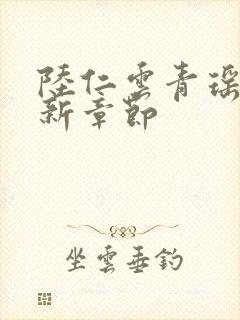 陸仁雲青瑶
新章節
坐雲垂釣